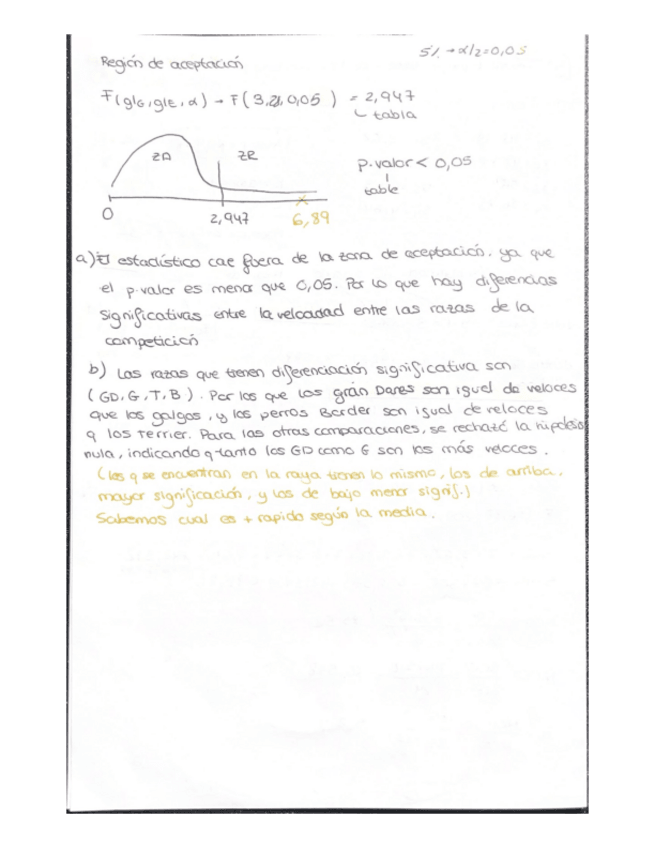 5% → α/2=0,05
Región de aceptación
F(glG, glE, α) → F(3,21,0,05) = 2,947
↳ tabla
ZA ZR
p.valor < 0,05
table
0 2,947 6,89
a) El estadístico cae fuera de la zona de aceptación, ya que
el p.valor es menor que 0,05. Por lo que hay diferencias
significativas entre la velocidad entre las razas de la
competición
b) Las razas que tienen diferenciación significativa son
(GD, G, T, B). Por los que los grán Danes son igual de veloces
que los galgos, y los perros Border son igual de veloces
q los terrier. Para las otras comparaciones, se rechazó la hipótesis
nula, indicando q tanto los GD como G son los más veloces.
(los q se encuentran en la raya tienen lo mismo, los de arriba,
mayor significación, y los de bajo menor signif.)
Sabemos cual es + rapido según la media.